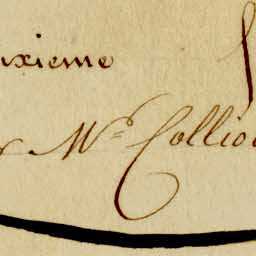 uxieme
r Mr. Collio